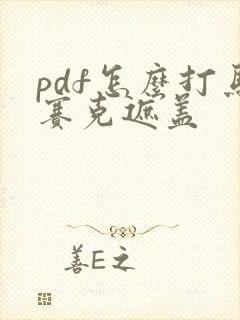 pdf怎麼打馬
賽克遮盖
善E之